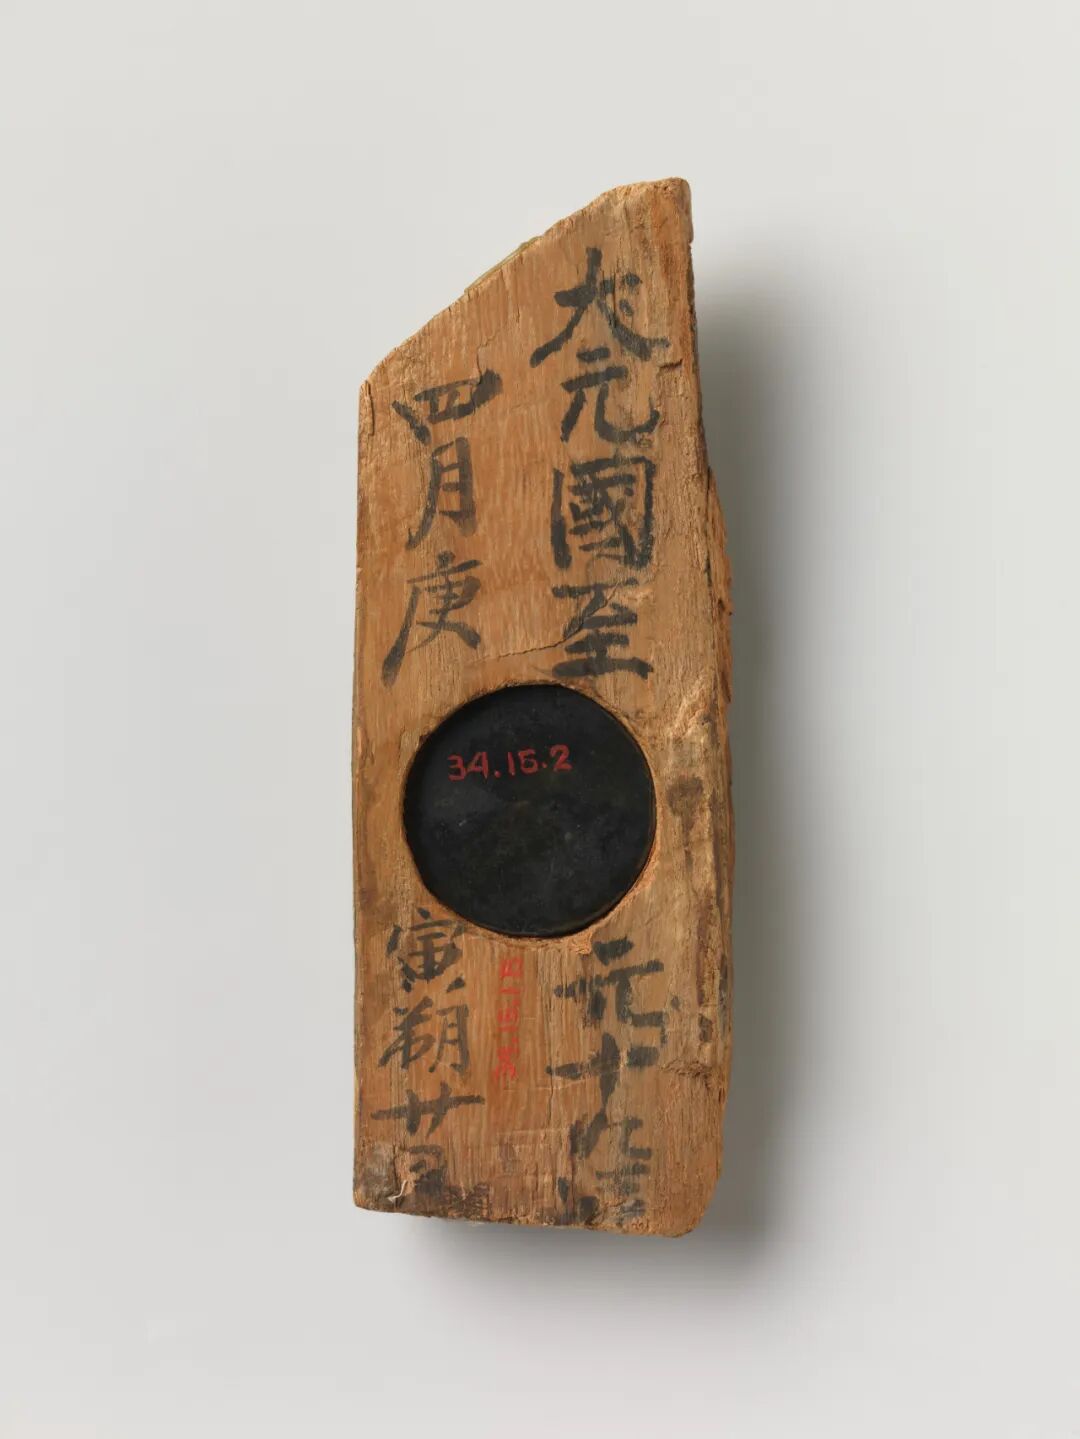 大元國至
元十九
四月庚
寅朔廿
34.15.2
34.15.1